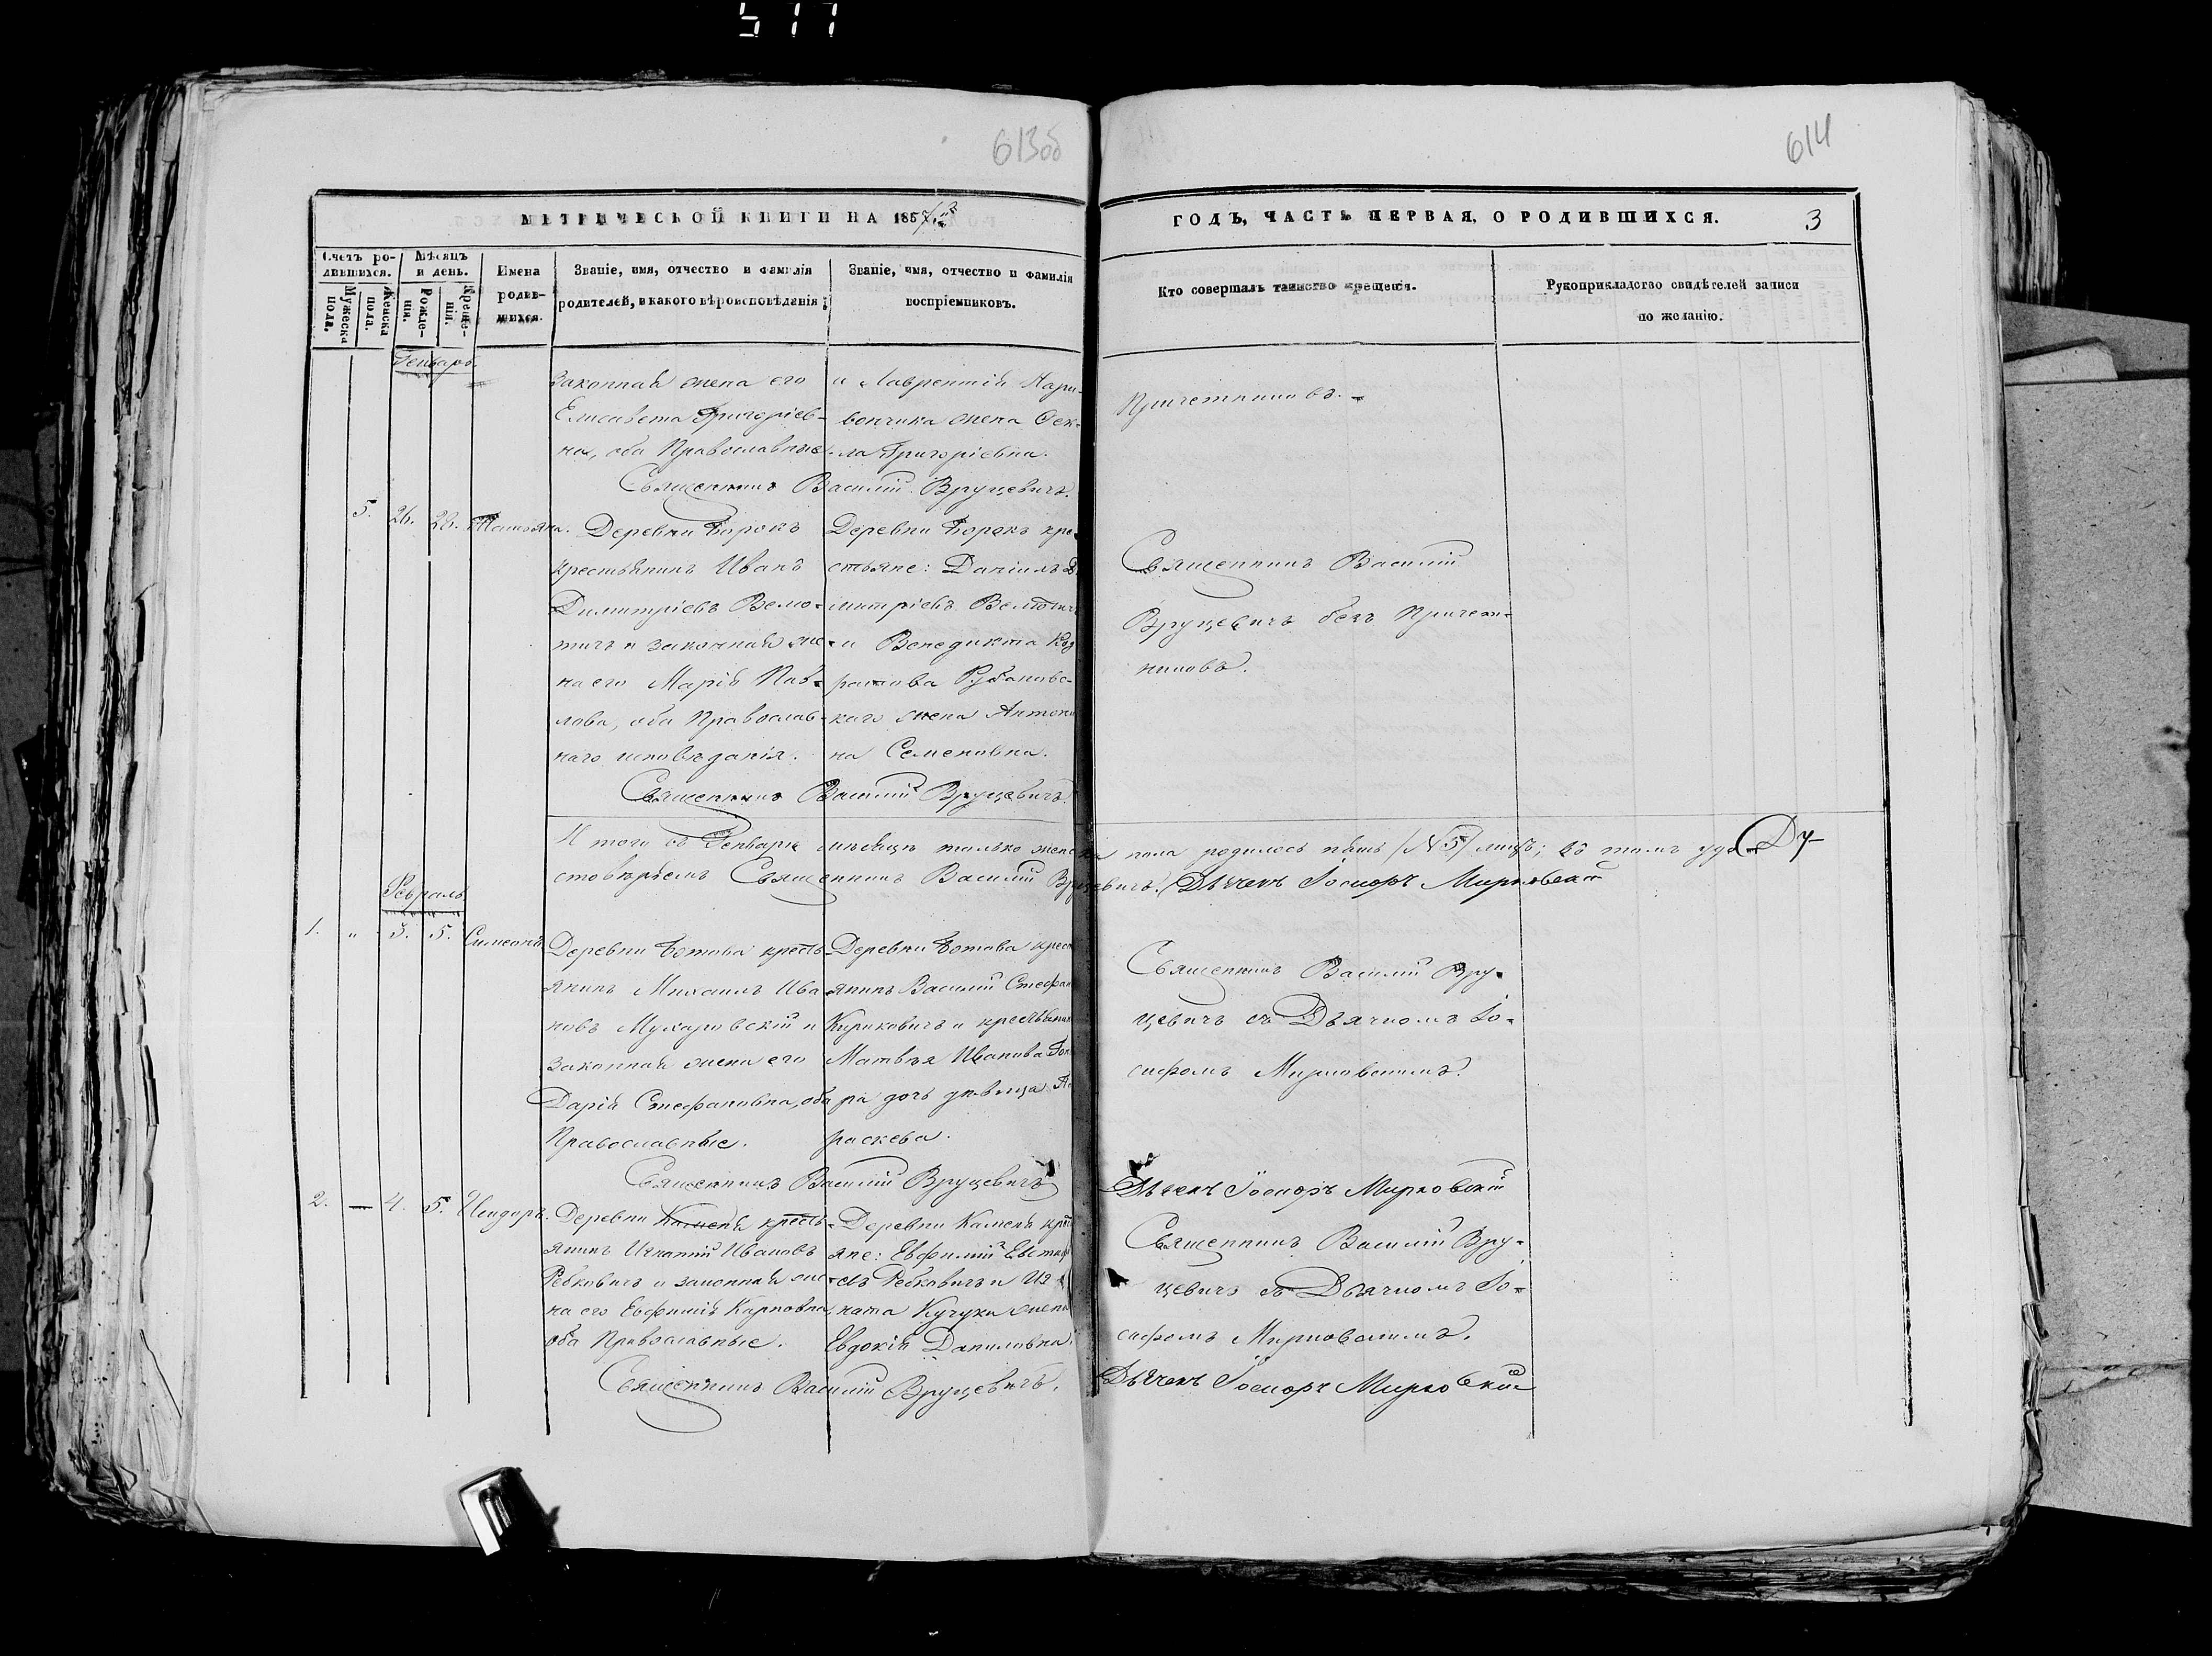 577
613об
614
МЕТРИЧЕСКОЙ КНИГИ НА 1857й
ГОДЪ, ЧАСТЬ ПЕРВАЯ, О РОДИВШИХСЯ.
3
Счетъ ро-
дившихся.
Мужеска
пола.
Женска
пола.
Мѣсяцъ
и день.
Рожде-
нія.
Креще-
нія.
Имена
родив-
шихся.
Званіе, имя, отчество и фамилія
родителей, и какого вѣроисповѣданія;
Званіе, имя, отчество и фамилія
воспріемниковъ.
Кто совершалъ таинство крещенія.
Рукоприкладство свидѣтелей записи
по желанію.
Генварь.
Законная жена его
Елисавета Григоріев-
на, оба Православные
и Лаврентій
вончика жена Фек-
ла Григоріевна.
Причетниковъ.
Священникъ Василій Вруцевичъ.
5. 26. 28. Татьяна.
Деревни Борокъ
крестьянинъ Иванъ
Димитріевъ Велю-
тичъ и законная же-
на его Марія Пав-
лова, оба Православ-
наго исповѣданія.
Деревни Борокъ кре-
стьяне: Даніилъ Д
митріевъ
и Венедикта
ратова Рубановс-
каго жена Антони
на Семеновна.
Священникъ Василій
Вруцевичъ безъ Причет-
никовъ.
Священникъ Василій Вруцевичъ.
И того въ Генварѣ мѣсяцѣ только женска пола родилось пять /№ 5/ лицъ; въ томъ удо-
стовѣряемъ Священникъ Василій Вруцевичъ. Дьячекъ Іосифъ Мирковскій
Февраль
1. „ 3. 5. Симеонъ
Деревни Ботова кресть
янинъ Михаилъ Ива
новъ Мухаровскій и
законная жена его
Дарія Стефановна, оба
Православные.
Деревни Ботова крест
янинъ Василій Стефан
Кириковичъ и крестьянина
Матвѣя Иванова Гон
ра дочь дѣвица Па
раскева.
Священникъ Василій Вру-
цевичъ съ Дьячкомъ Іо-
сифомъ Мирковскимъ.
Священникъ Василій Вруцевичъ
Дьячекъ Іосифъ Мирковскій
2. — 4. 5. Исидоръ.
Деревни Каменя кресть-
янинъ Игнатій Ивановъ
Ребковичъ и законная же-
на его Евфимія Карповна
оба Православные.
Деревни Каменя крест
яне: Евфимій Евстаф
евъ Ребковичъ и Иг
ната Кучука жена
Евдокія Даниловна.
Священникъ Василій Вру-
цевичъ съ Дьячкомъ Іо-
сифомъ Мирковскимъ.
Священникъ Василій Вруцевичъ.
Дьячекъ Іосифъ Мирковскій